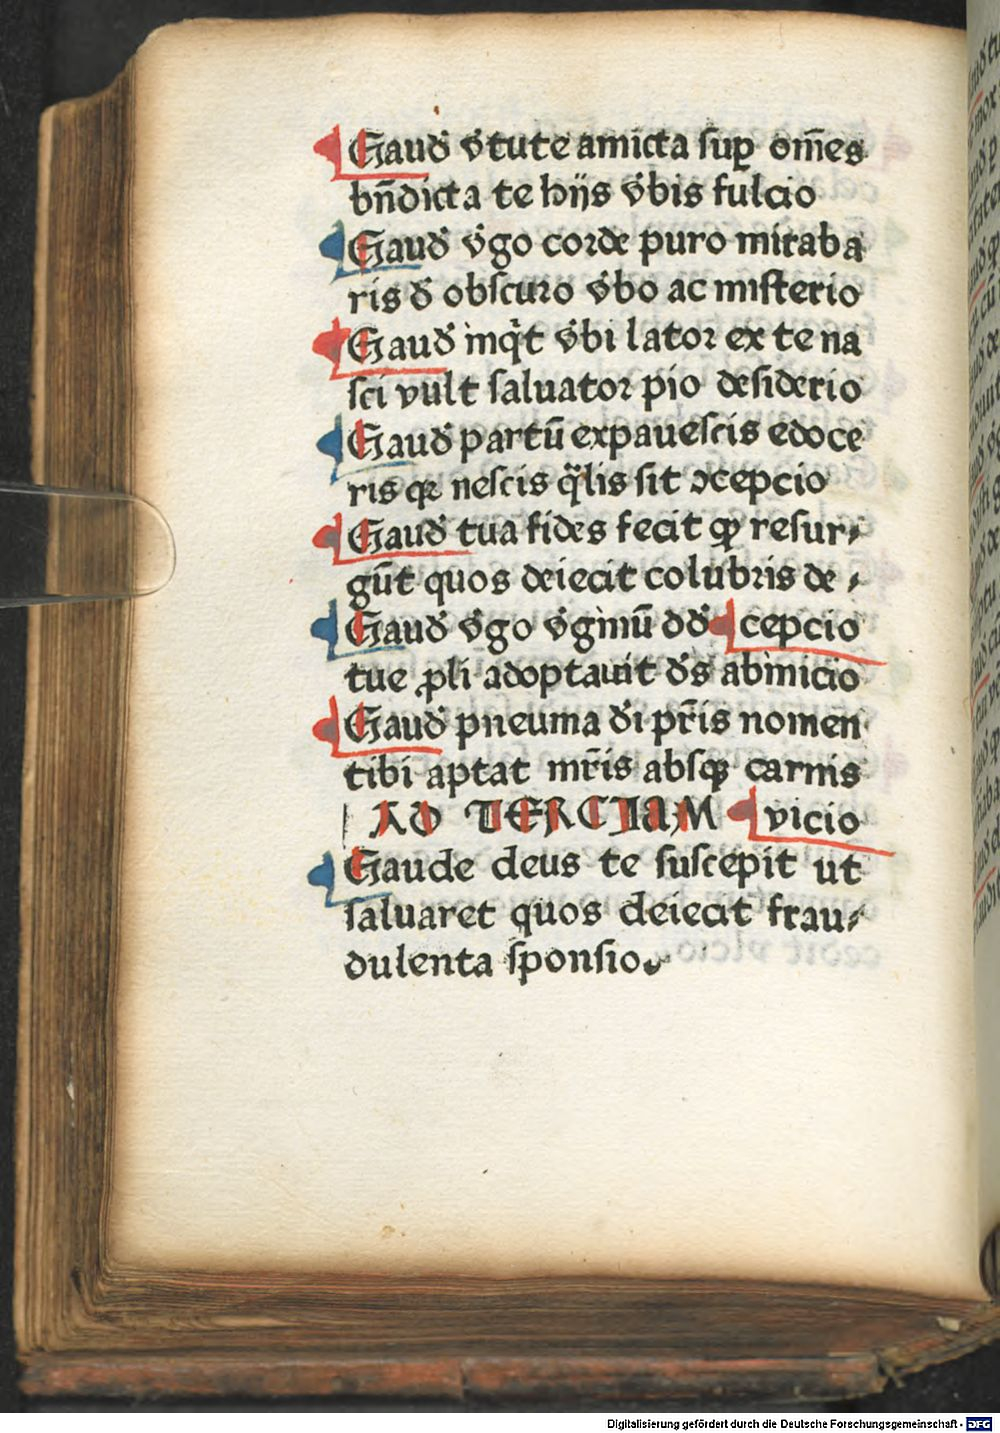 Gaud̕ v̕tute amicta sup̲ om̅es
bn̅dicta te hijs v̕bis fulcio
Gaud̕ v̕go corde puro miraba
ris d̕ obscuro v̕bo ac misterio
Gaud̕ inq̇t v̕bi lator ex te na
sci vult saluator pio desiderio
Gaud̕ partu̅ expauescis edoce
ris qꝛ nescis q̈lis sit ↄcepcio
Gaud̕ tua fides fecit ꝙ resur⸗
gu̅t quos deiecit colubris de⸗
Gaud̕ v̕go v̕ginu̅ dd̕ cepcio
tue ꝓli adoptauit d̕s abinicio
Gaud̕ pneuma d̕i pr̅is nomen
tibi aptat mr̅is absqꝫ carnis
AD TERCIAM vicio
Gaude deus te suscepit ut
saluaret quos deiecit frau⸗
dulenta sponsio
Digitalisierung gefördert durch die Deutsche Forschungsgemeinschaft - DFG